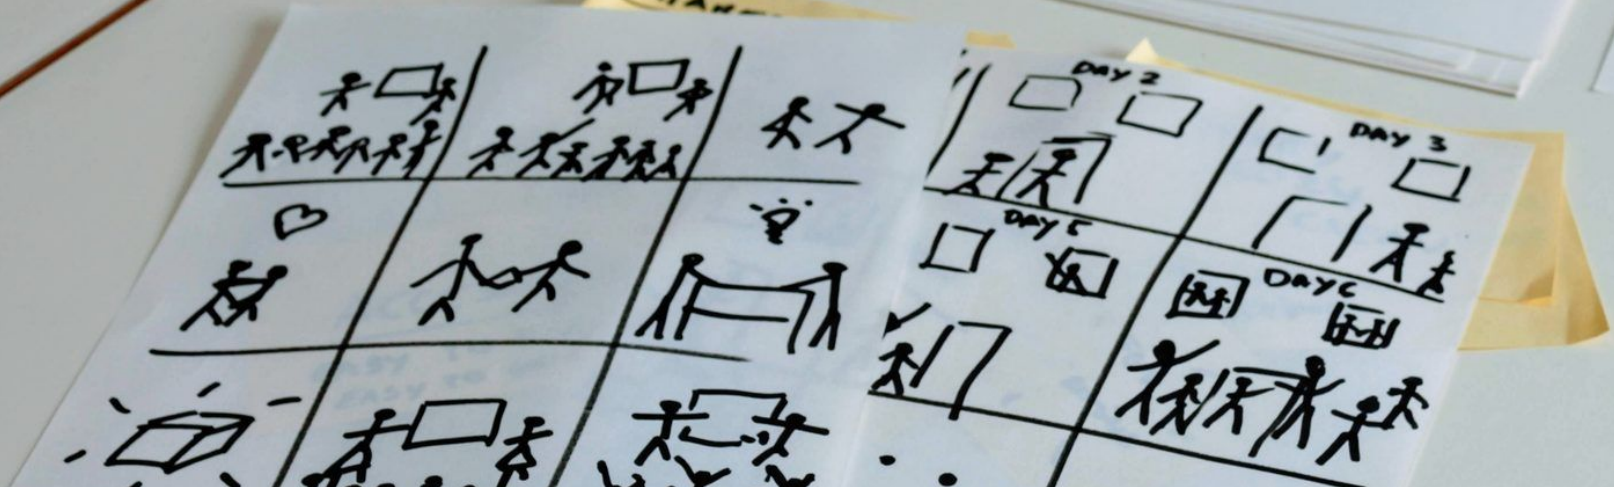 DAY 2
DAY 3
DAY 5
DAY 6